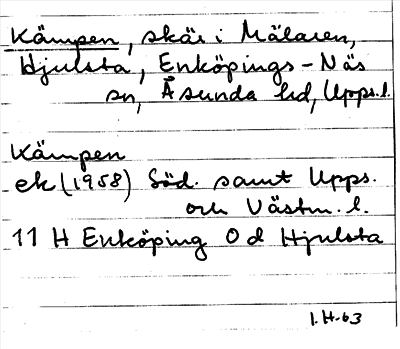 Kämpen, skär i Mälaren,
Hjulsta, Enköpings-Näs
sn, Åsunda hd, Upps.l.
Kämpen
ek (1958) Söd. samt Upps.
och Västm. l.
11 H Enköping 0 d Hjulsta
I. H-63